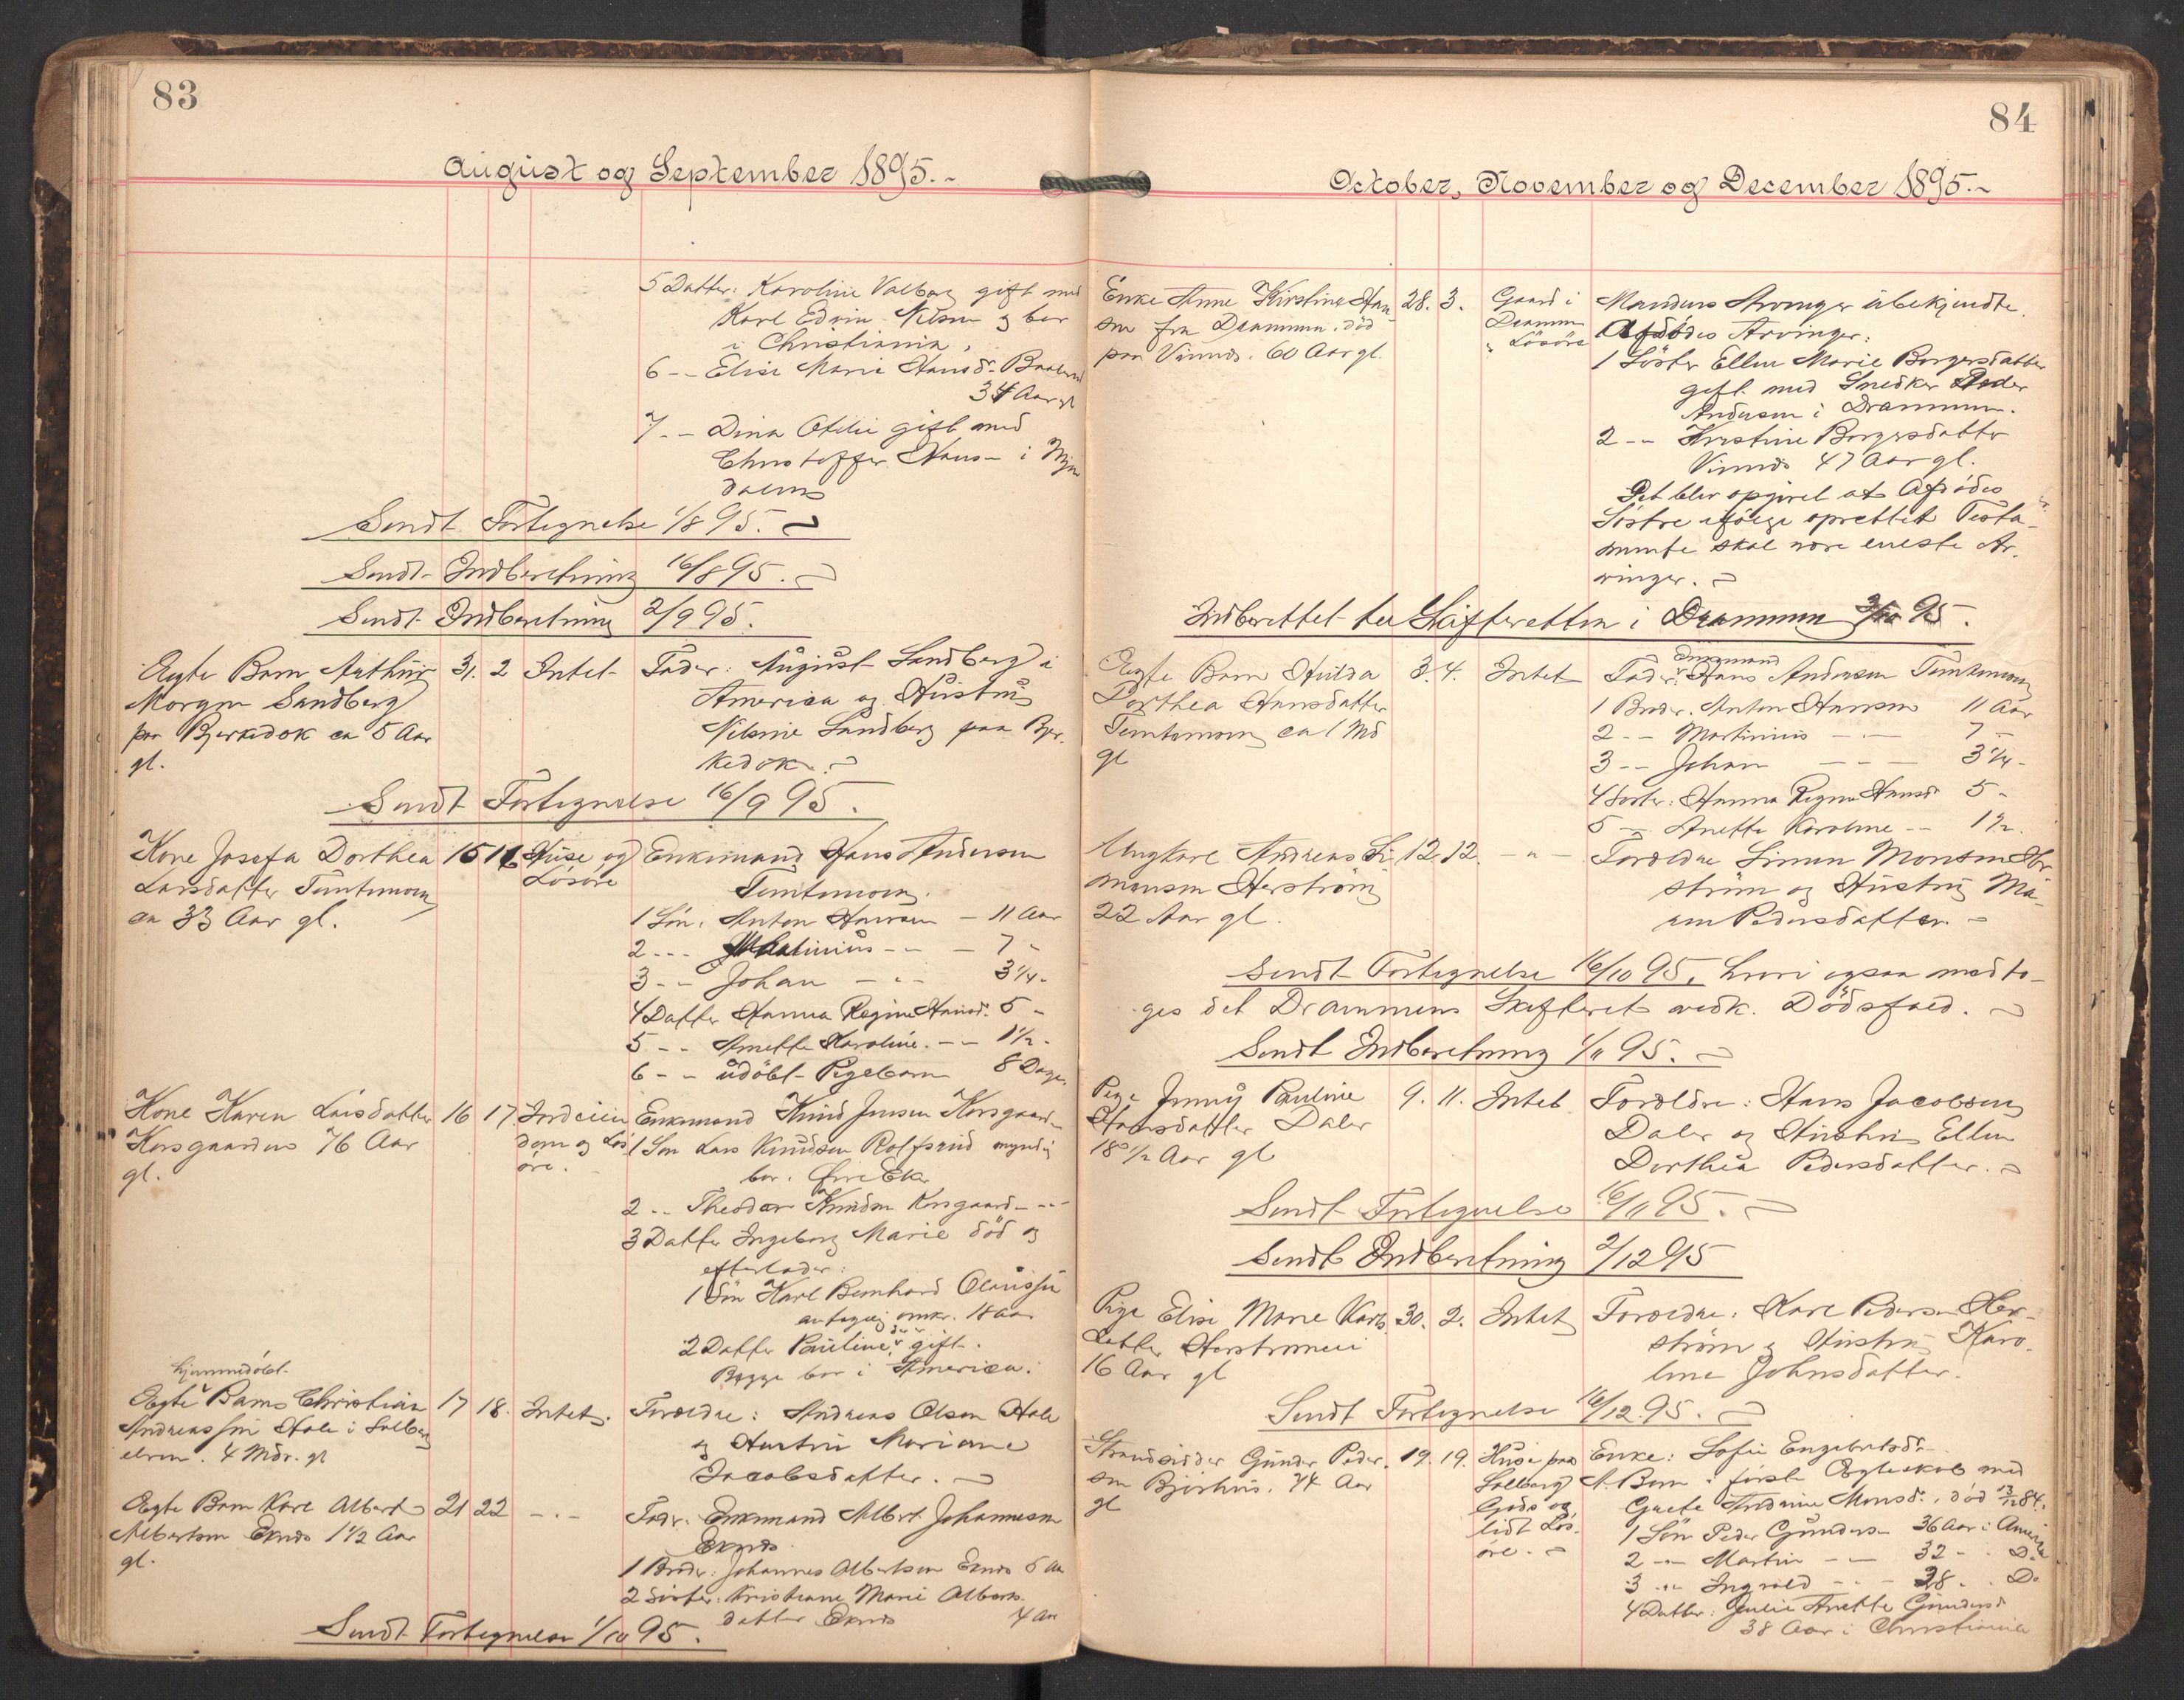 83
August og September 1895.-
5 Datter: Karoline Valborg gift med
Karl Edvin Nilsen og bor
i Christiania,
6 -- Elise Marie Hansd.
34 Aar gl
7 -- Dina Otilie gift med
Christoffer Hansen i
dalen
Sendt Fortegnelse 1/8 95.
Sendt Indberetning 16/8 95.
Sendt Indberetning 2/9 95.
Egte Barn Arthur 31. 2 Intet Fader: August Sandberg i
Morgen Sandberg America og Hustru
paa Bjerkedok ca 5 Aar Nilsine Sandberg paa Bjer-
gl. kedok.
Sendt Fortegnelse 16/9 95.
Kone Josefa Dorthea 15 16 Huse og Enkemand Hans Andersen
Larsdatter Tømtemoen Løsøre Tømtemoen.
ca 33 Aar gl. 1 Søn: Anton Hansen - 11 Aar
2 --- Martinius -- - 7 -
3 -- Johan - -- 3 1/4 -
4 Datter Hanna Regine Hansd. 5 -
5 -- Anette Karoline. -- 1 1/2 -
6 -- udøbt Pigebarn 8 Dage.
Kone Karen Larsdatter 16 17. Jordeien Enkemand Knud Jensen Korsgaard-
Korsgaarden 76 Aar dom og Løs 1 Søn Lars Knudsen Rolfsrud myndig
gl. øre. bor. Øvre Eker
2 -- Theodor Knudsen Korsgaard- --
3 Datter Ingeborg Marie død og
efterlader:
1 Søn Karl Bernhard Olaussen
antagelig omkr. 18 Aar
2 Datter Pauline, der er gift.
Begge bor i America.
hjemmedøbt
Egte Barn Christian 17 18. Intet. Forældre: Andreas Olsen Hole
Andreassen Hole i Solberg og Hustru Mariane
elven. 4 Mdr. gl Jacobsdatter.
Egte Barn Karl Albert 21 22 -"- Fader: Enkemand Albert Johannesen
Albertsen Eknes 1 1/2 Aar Eknes
gl. 1 Broder: Johannes Albertsen Eknes 5 Aar
2 Søster: Kristiane Marie Alberts-
datter Eknes 4 Aar
Sendt Fortegnelse 1/10 95.
84
October, November og December 1895.-
Enke Anne Kirstine Han 28. 3. Gaard i Mandens Arvinger ubekjendte.
sen fra Drammen. død Drammen Afdødes Arvinger:
paa Vinnes. 60 Aar gl. & Løsøre 1 Søster Ellen Marie Borgersdatter
gift med Snedker Peder
Andersen i Drammen.
2 -- Kirstine Borgersdatter
Vinnes 47 Aar gl.
Det blev opgivet at Afdødes
Søstre ifølge oprettet Testa-
mente skal være eneste Ar-
vinger.
Indberettet til Skifteretten i Drammen 3/10 95.
Egte Barn Hulda 3. 4. Intet Fader: Hans Andersen Tømtemoen
Dorthea Hansdatter 1 Broder. Anton Hansen 11 Aar
Tømtemoen ca 1 Md 2 -- Martinius -- 7 -
gl 3 -- Johan -- 3 1/4 -
4 Søster: Hanna Regine Hansd 5 -
5 -- Anette Karoline -- 1 1/2.
Ungkarl Andreas Si 12. 12. -"- Forældre Simen Monsen Her
monsen Herstrøm ström og Hustru Ma-
22 Aar gl. ren Pedersdatter.
Sendt Fortegnelse 16/10 95, hvori ogsaa medto-
ges det Drammens Skifteret vedk. Dödsfald.
Sendt Indberetning 1/11 95.
Pige Jenny Pauline 9. 11. Intet Forældre: Hans Jacobsen
Hansdatter Daler Daler og Hustru Ellen
18 1/2 Aar gl Dorthea Pedersdatter.
Sendt Fortegnelse 16/11 95.
Sendt Indberetning 2/12 95
Pige Elise Marie Karls 30. 2. Intet Forældre: Karl Pedersen Her-
datter Herstrømen ström og Hustru Karo-
16 Aar gl line Johnsdatter.
Sendt Fortegnelse 16/12 95.
Strandsidder Gunder Peder- 19. 19. Huse paa Enke: Sofie Engebretsd.
sen Bjørhus. 74 Aar Solberg A. Børn i første Egteskab med
gl Gods og Grete Andrine Monsd., død 13/12 84.
lidt Løs- 1 Søn Peder Gundersen 36 Aar i Amerika
øre. 2 -- Martin -- 32 - Do
3 -- Ingvald -- 28. Do
4 Datter: Julie Anette Gundersd
38 Aar i Christiania